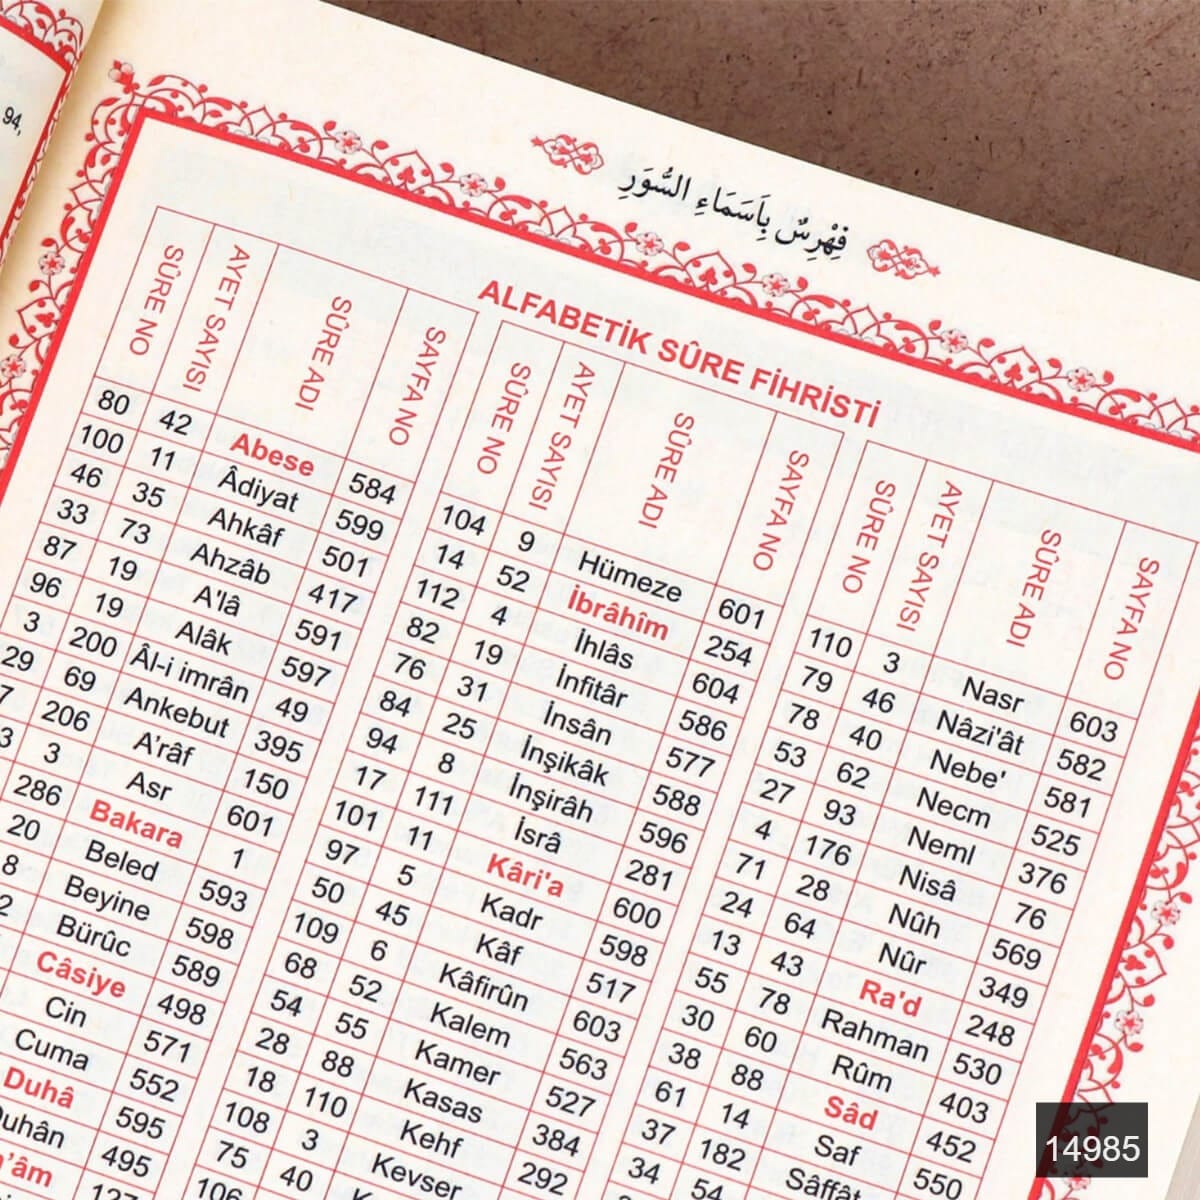 94,
فِهْرِسٌ بِاَسَمَاءِ السُّوَرِ
ALFABETİK SÛRE FİHRİSTİ
SÛRE NO AYET SAYISI SÛRE ADI SAYFA NO
80 42 Abese 584
100 11 Âdiyat 599
46 35 Ahkâf 501
33 73 Ahzâb 417
87 19 A'lâ 591
96 19 Alâk 597
3 200 Âl-i imrân 49
29 69 Ankebut 395
7 206 A'râf 150
3 3 Asr 601
286 Bakara 1
20 Beled 593
8 Beyine 598
2 Bürûc 589
Câsiye 498
Cin 571
Cuma 552
Duhâ 595
495
SÛRE NO AYET SAYISI SÛRE ADI SAYFA NO
104 9 Hümeze 601
14 52 İbrâhîm 254
112 4 İhlâs 604
82 19 İnfitâr 586
76 31 İnsân 577
84 25 İnşikâk 588
94 8 İnşirâh 596
17 111 İsrâ 281
101 11 Kâri'a 600
97 5 Kadr 598
50 45 Kâf 517
109 6 Kâfirûn 603
68 52 Kalem 563
54 55 Kamer 527
28 88 Kasas 384
18 110 Kehf 292
108 3 Kevser
75 40
106
SÛRE NO AYET SAYISI SÛRE ADI SAYFA NO
110 3 Nasr 603
79 46 Nâzi'ât 582
78 40 Nebe' 581
53 62 Necm 525
27 93 Neml 376
4 176 Nisâ 76
71 28 Nûh 569
24 64 Nûr 349
13 43 Ra'd 248
55 78 Rahman 530
30 60 Rûm 403
38 88 Sâd 452
61 14 Saf 550
37 182 Sâffât
34 54
14985